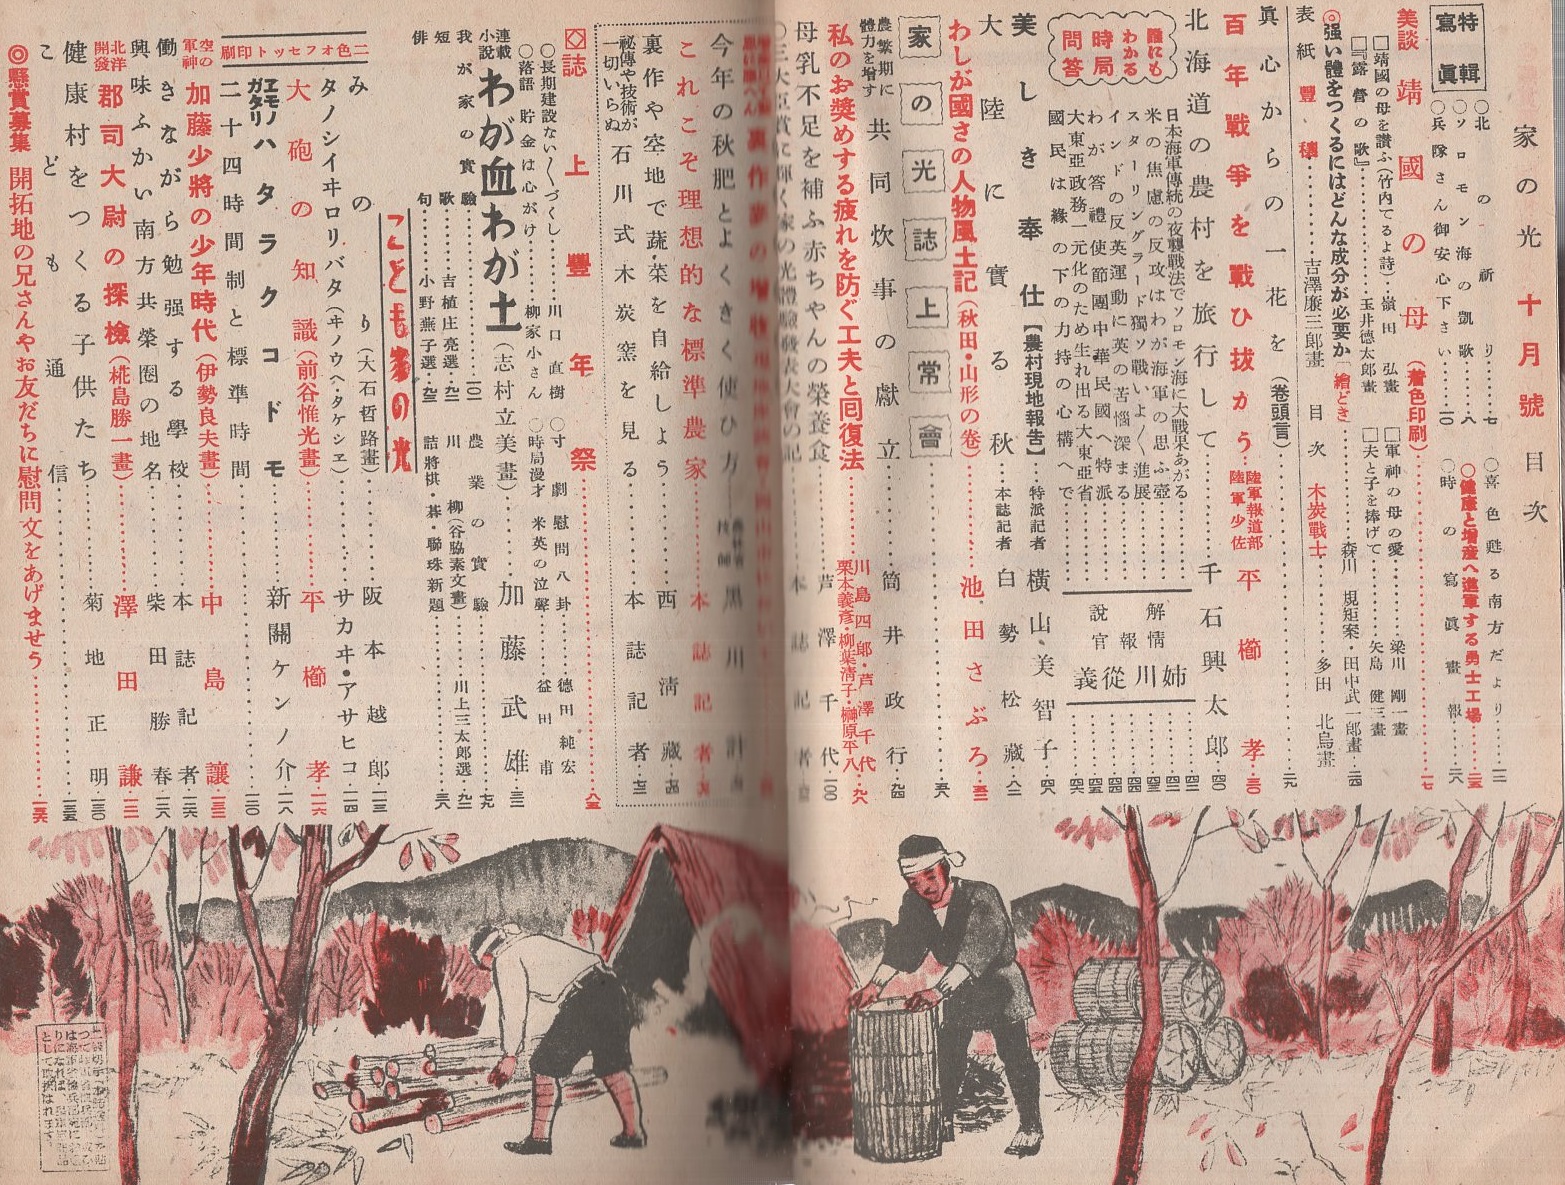 家の光 十月號 目次
特輯
寫眞
◯北の祈り……七
◯ソロモン海の凱歌……八
◯兵隊さん御安心下さい……一〇
◯喜色甦る南方だより……一二
◎健康と增産へ進軍する勇士工場
◯時の寫眞畫報……二八
美談 靖國の母(着色印刷)……一七
□靖國の母を讚ふ(竹内てるよ詩)…嶺田 弘畫
□軍神の母の愛……梁川 剛一畫
□『露營の歌』……玉井德太郞畫
□夫と子を捧げて……矢島 健三畫
◎强い體をつくるにはどんな成分が必要か「繪とき」……森川 規矩案・田中武一郞畫…一四
表紙 豐穰……吉澤廉三郞畫
目次 木炭戰士……多田 北烏畫
眞心からの一花を(卷頭言)……一九
百年戰爭を戰ひ拔かう 陸軍報道部 陸軍少佐 平櫛 孝…二〇
北海道の農村を旅行して……千石興太郞…四〇
誰にもわかる時局問答
日本海軍傳統の夜襲戰法でソロモン海に大戰果あがる
米の焦慮の反攻はわが海軍の思ふ壺
スターリングラード獨ソ戰いよ〳〵進展
インドの反英運動に英の苦惱深まる
わが答禮使節團中華民國へ特派
大東亞政務一元化のため生れ出る大東亞省
國民は緣の下の力持の心構へで
解說
情報官
姉川從義
美しき奉仕【農村現地報告】……特派記者 橫山美智子…四八
大陸に實る秋……本誌記者 白勢松藏…八二
わしが國さの人物風土記(秋田・山形の卷)……池田さぶろ
家の光誌上常會……五六
農繁期に體力を增す 共同炊事の獻立……筒井政行…九四
私のお奬めする疲れを防ぐ工夫と囘復法……川島四郞・芦澤千代 栗本義彥・柳葉淸子・榊原平八…九八
母乳不足を補ふ赤ちやんの榮養食……芦澤千代…一〇〇
◯三大臣賞に輝く家の光體驗發表大會の記……本誌記者
今年の秋肥とよくきく使ひ方……黑川 計
これこそ理想的な標準農家……本誌記者
裏作や空地で蔬菜を自給しよう……西 淸藏
秘傳や技術が一切いらぬ 石川式木炭窯を見る……本誌記者
誌上豐年祭
◯長期建設ない〳〵づくし……川口 直樹
◯寸劇 慰問八卦……德田 純宏
◯落語 貯金は心がけ……柳家小さん
◯時局漫才 米英の泣聲……益田 甫
連載小說 わが血わが土(志村立美畫)……加藤武雄
我が家の實驗……一〇一
農業の實驗
短歌……吉植庄亮選
川柳(谷脇素文畫)……川上三太郞選
俳句……小野蕪子選
詰將棋・碁・聯珠新題
こども家の光
二色オフセット印刷
みのり(大石哲路畫)……阪本越郞
タノシイヰロリバタ(ヰノウヘ・タケシヱ)……サカヰ・アサヒコ
大砲の知識(前谷惟光畫)……平櫛 孝
ヱモノガタリ ハタラクコドモ……新關ケンノ介
二十四時間制と標準時間
空の軍神 加藤少將の少年時代(伊勢良夫畫)……中島 讓
働きながら勉强する學校……本誌記者
興味ふかい南方共榮圈の地名……柴田勝春
北洋開發 郡司大尉の探檢(椛島勝一畫)……澤田 謙
健康村をつくる子供たち……菊地正明
こども通信
◎懸賞募集 開拓地の兄さんやお友だちに慰問文をあげませう